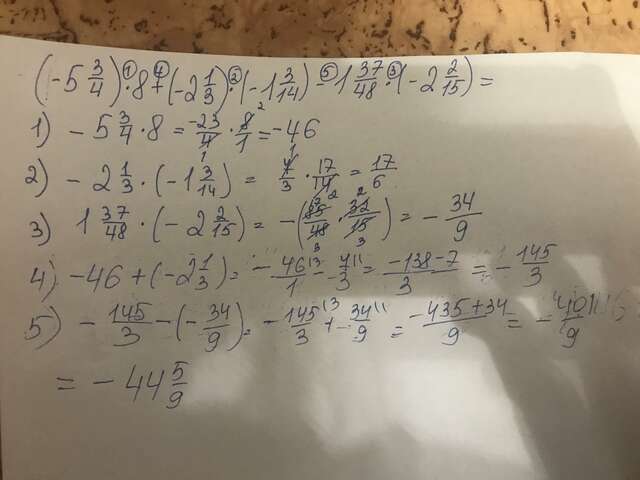 (-5 3/4) · 8 + (-2 1/3) · (-1 3/14) - 1 37/48 · (-2 2/15) =
1) - 5 3/4 · 8 = -23/4 · 8/1 = -46
2) - 2 1/3 · (-1 3/14) = 7/3 · 17/14 = 17/6
3) 1 37/48 · (-2 2/15) = -(85/48 · 32/15) = - 34/9
4) -46 + (-2 1/3) = - 46/1 - 7/3 = -138-7/3 = - 145/3
5) - 145/3 - (- 34/9) = - 145/3 + 34/9 = -435+34/9 = - 401/9
= - 44 5/9